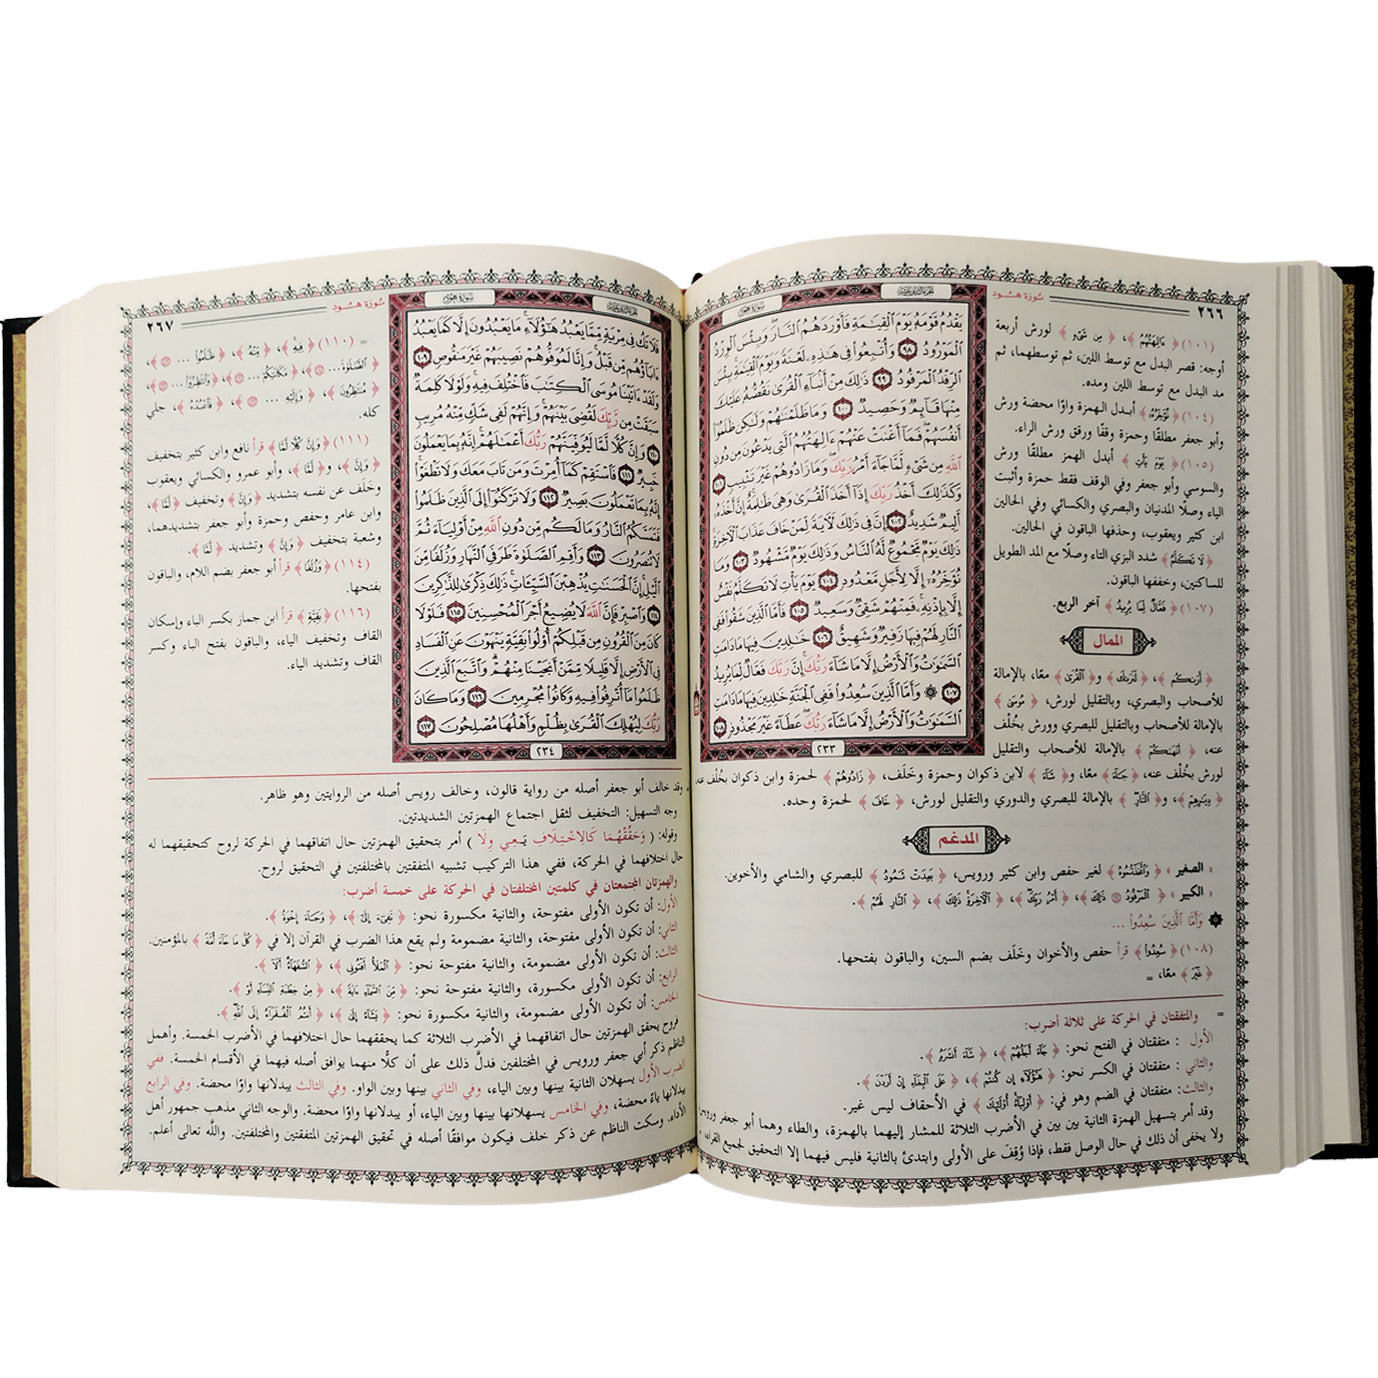 ٢٦٦
سُورَة هُود
سورة هود
(١٠١) ﴿ءَالِهَتُهُمُ﴾، ﴿مِن شَىْءٍ﴾ لورش أربعة
أوجه: قصر البدل مع توسط اللين، ثم توسطهما، ثم
مد البدل مع توسط اللين ومده.
(١٠٤) ﴿نُؤَخِّرُهُ﴾ أبدل الهمزة واوًا محضة ورش
وأبو جعفر مطلقًا وحمزة وقفًا ورقق ورش الراء.
(١٠٥) ﴿يَوْمَ يَأْتِ﴾ أبدل الهمز مطلقًا ورش
والسوسي وأبو جعفر وفي الوقف فقط حمزة وأثبت
الياء وصلًا المدنيان والبصري والكسائي وفي الحالين
ابن كثير ويعقوب، وحذفها الباقون في الحالين.
﴿لَا تَكَلَّمُ﴾ شدد البزي التاء وصلًا مع المد الطويل
للساكنين، وخففها الباقون.
(١٠٧) ﴿فَعَّالٌ لِّمَا يُرِيدُ﴾ آخر الربع.
الممال
﴿أَرَىٰكُمْ﴾، ﴿لَنَرَىٰكَ﴾ و﴿ٱلْقُرَىٰ﴾ معًا، بالإمالة
للأصحاب والبصري، وبالتقليل لورش، ﴿مُوسَىٰ﴾
بالإمالة للأصحاب وبالتقليل للبصري وورش بخُلْف
عنه، ﴿أَنْهَىٰكُمْ﴾ بالإمالة للأصحاب والتقليل
لورش بخُلْف عنه، ﴿جَآءَ﴾ معًا، و﴿شَآءَ﴾ لابن ذكوان وحمزة وخَلَف، ﴿زَادُوهُمْ﴾ لحمزة وابن ذكوان بخُلْف عنه
﴿دِيَٰرِهِمْ﴾، و﴿ٱلنَّارِ﴾ بالإمالة للبصري والدوري والتقليل لورش، ﴿خَافَ﴾ لحمزة وحده.
يَقْدُمُ قَوْمَهُۥ يَوْمَ ٱلْقِيَٰمَةِ فَأَوْرَدَهُمُ ٱلنَّارَ ۖ وَبِئْسَ ٱلْوِرْدُ
ٱلْمَوْرُودُ ٩٨ وَأُتْبِعُوا۟ فِى هَٰذِهِۦ لَعْنَةً وَيَوْمَ ٱلْقِيَٰمَةِ ۚ بِئْسَ
ٱلرِّفْدُ ٱلْمَرْفُودُ ٩٩ ذَٰلِكَ مِنْ أَنۢبَآءِ ٱلْقُرَىٰ نَقُصُّهُۥ عَلَيْكَ ۖ
مِنْهَا قَآئِمٌ وَحَصِيدٌ ١٠٠ وَمَا ظَلَمْنَٰهُمْ وَلَٰكِن ظَلَمُوٓا۟
أَنفُسَهُمْ ۖ فَمَآ أَغْنَتْ عَنْهُمْ ءَالِهَتُهُمُ ٱلَّتِى يَدْعُونَ مِن دُونِ
ٱللَّهِ مِن شَىْءٍ لَّمَّا جَآءَ أَمْرُ رَبِّكَ ۖ وَمَا زَادُوهُمْ غَيْرَ تَتْبِيبٍ ١٠١
وَكَذَٰلِكَ أَخْذُ رَبِّكَ إِذَآ أَخَذَ ٱلْقُرَىٰ وَهِىَ ظَٰلِمَةٌ ۚ إِنَّ أَخْذَهُۥٓ
أَلِيمٌ شَدِيدٌ ١٠٢ إِنَّ فِى ذَٰلِكَ لَءَايَةً لِّمَنْ خَافَ عَذَابَ ٱلْءَاخِرَةِ ۚ
ذَٰلِكَ يَوْمٌ مَّجْمُوعٌ لَّهُ ٱلنَّاسُ وَذَٰلِكَ يَوْمٌ مَّشْهُودٌ ١٠٣ وَمَا
نُؤَخِّرُهُۥٓ إِلَّا لِأَجَلٍ مَّعْدُودٍ ١٠٤ يَوْمَ يَأْتِ لَا تَكَلَّمُ نَفْسٌ
إِلَّا بِإِذْنِهِۦ ۚ فَمِنْهُمْ شَقِىٌّ وَسَعِيدٌ ١٠٥ فَأَمَّا ٱلَّذِينَ شَقُوا۟ فَفِى
ٱلنَّارِ لَهُمْ فِيهَا زَفِيرٌ وَشَهِيقٌ ١٠٦ خَٰلِدِينَ فِيهَا مَا دَامَتِ
ٱلسَّمَٰوَٰتُ وَٱلْأَرْضُ إِلَّا مَا شَآءَ رَبُّكَ ۚ إِنَّ رَبَّكَ فَعَّالٌ لِّمَا يُرِيدُ
١٠٧ ۞ وَأَمَّا ٱلَّذِينَ سُعِدُوا۟ فَفِى ٱلْجَنَّةِ خَٰلِدِينَ فِيهَا مَا دَامَتِ
ٱلسَّمَٰوَٰتُ وَٱلْأَرْضُ إِلَّا مَا شَآءَ رَبُّكَ ۖ عَطَآءً غَيْرَ مَجْذُوذٍ ١٠٨
٢٣٣
المدغم
الصغير: ﴿وَٱتَّخَذْتُمُوهُ﴾ لغير حفص وابن كثير ورويس، ﴿بَعِدَتْ ثَمُودُ﴾ للبصري والشامي والأخوين.
الكبير: ﴿ٱلْمَرْفُودُ ذَٰلِكَ﴾، ﴿أَمْرُ رَبِّكَ﴾، ﴿ٱلْءَاخِرَةِ ذَٰلِكَ﴾، ﴿ٱلنَّارِ لَهُمْ﴾.
۞ وَأَمَّا ٱلَّذِينَ سُعِدُوا۟ ...
(١٠٨) ﴿سُعِدُوا۟﴾ قرأ حفص والأخوان وخَلَف بضم السين، والباقون بفتحها.
﴿غَيْرَ﴾ معًا، =
= والمتفقتان في الحركة على ثلاثة أضرب:
الأول: متفقتان في الفتح نحو: ﴿جَآءَ أَجَلُهُمْ﴾، ﴿شَآءَ أَنشَرَهُۥ﴾.
والثاني: متفقتان في الكسر نحو: ﴿هَٰٓؤُلَآءِ إِن كُنتُمْ﴾، ﴿عَلَى ٱلْبِغَآءِ إِنْ أَرَدْنَ﴾.
والثالث: متفقتان في الضم وهو في: ﴿أَوْلِيَآءُ أُو۟لَٰٓئِكَ﴾ في الأحقاف ليس غير.
وقد أمر بتسهيل الهمزة الثانية بين بين في الأضرب الثلاثة للمشار إليهما بالهمزة، والطاء وهما أبو جعفر ورويس
ولا يخفى أن ذلك في حال الوصل فقط، فإذا وُقِفَ على الأولى وابتدئ بالثانية فليس فيهما إلا التحقيق لجميع القراء، =
٢٦٧
سُورَة هُود
سورة هود
فَلَا تَكُ فِى مِرْيَةٍ مِّمَّا يَعْبُدُ هَٰٓؤُلَآءِ ۚ مَا يَعْبُدُونَ إِلَّا كَمَا يَعْبُدُ
ءَابَآؤُهُم مِّن قَبْلُ ۚ وَإِنَّا لَمُوَفُّوهُمْ نَصِيبَهُمْ غَيْرَ مَنقُوصٍ ١٠٩
وَلَقَدْ ءَاتَيْنَا مُوسَى ٱلْكِتَٰبَ فَٱخْتُلِفَ فِيهِ ۚ وَلَوْلَا كَلِمَةٌ
سَبَقَتْ مِن رَّبِّكَ لَقُضِىَ بَيْنَهُمْ ۚ وَإِنَّهُمْ لَفِى شَكٍّ مِّنْهُ مُرِيبٍ
١١٠ وَإِنَّ كُلًّا لَّمَّا لَيُوَفِّيَنَّهُمْ رَبُّكَ أَعْمَٰلَهُمْ ۚ إِنَّهُۥ بِمَا يَعْمَلُونَ
خَبِيرٌ ١١١ فَٱسْتَقِمْ كَمَآ أُمِرْتَ وَمَن تَابَ مَعَكَ وَلَا تَطْغَوْا۟ ۚ
إِنَّهُۥ بِمَا تَعْمَلُونَ بَصِيرٌ ١١٢ وَلَا تَرْكَنُوٓا۟ إِلَى ٱلَّذِينَ ظَلَمُوا۟
فَتَمَسَّكُمُ ٱلنَّارُ وَمَا لَكُم مِّن دُونِ ٱللَّهِ مِنْ أَوْلِيَآءَ ثُمَّ
لَا تُنصَرُونَ ١١٣ وَأَقِمِ ٱلصَّلَوٰةَ طَرَفَىِ ٱلنَّهَارِ وَزُلَفًا مِّنَ
ٱلَّيْلِ ۚ إِنَّ ٱلْحَسَنَٰتِ يُذْهِبْنَ ٱلسَّيِّـَٔاتِ ۚ ذَٰلِكَ ذِكْرَىٰ لِلذَّٰكِرِينَ
١١٤ وَٱصْبِرْ فَإِنَّ ٱللَّهَ لَا يُضِيعُ أَجْرَ ٱلْمُحْسِنِينَ ١١٥ فَلَوْلَا
كَانَ مِنَ ٱلْقُرُونِ مِن قَبْلِكُمْ أُو۟لُوا۟ بَقِيَّةٍ يَنْهَوْنَ عَنِ ٱلْفَسَادِ
فِى ٱلْأَرْضِ إِلَّا قَلِيلًا مِّمَّنْ أَنجَيْنَا مِنْهُمْ ۗ وَٱتَّبَعَ ٱلَّذِينَ
ظَلَمُوا۟ مَآ أُتْرِفُوا۟ فِيهِ وَكَانُوا۟ مُجْرِمِينَ ١١٦ وَمَا كَانَ
رَبُّكَ لِيُهْلِكَ ٱلْقُرَىٰ بِظُلْمٍ وَأَهْلُهَا مُصْلِحُونَ ١١٧
٢٣٤
= (١١٠) ﴿فِيهِ﴾، ﴿مِنْهُ﴾، ﴿ظَلَمُوا۟ ...﴾،
﴿ٱلصَّلَوٰةَ ...﴾، ﴿مَكَانَتِكُمْ ...﴾، ﴿وَٱنتَظِرُوٓا۟ ...﴾،
﴿مُنتَظِرُونَ﴾، ﴿وَإِلَيْهِ ...﴾، ﴿فَٱعْبُدْهُ﴾، جلي
كله.
(١١١) ﴿وَإِنَّ كُلًّا لَّمَّا﴾ قرأ نافع وابن كثير بتخفيف
﴿وَإِنَّ﴾، و﴿لَّمَّا﴾، وأبو عمرو والكسائي ويعقوب
وخَلَف عن نفسه بتشديد ﴿وَإِنَّ﴾ وتخفيف ﴿لَّمَّا﴾،
وابن عامر وحفص وحمزة وأبو جعفر بتشديدهما،
وشعبة بتخفيف ﴿وَإِنَّ﴾ وتشديد ﴿لَّمَّا﴾.
(١١٤) ﴿وَزُلَفًا﴾ قرأ أبو جعفر بضم اللام، والباقون
بفتحها.
(١١٦) ﴿بَقِيَّةٍ﴾ قرأ ابن جماز بكسر الباء وإسكان
القاف وتخفيف الياء، والباقون بفتح الباء وكسر
القاف وتشديد الياء.
= وقد خالف أبو جعفر أصله من رواية قالون، وخالف رويس أصله من الروايتين وهو ظاهر.
وجه التسهيل: التخفيف لثقل اجتماع الهمزتين الشديدتين.
وقوله: (وَحَقَّقَهُمَا كَالِاخْتِلَافِ يَـعِي وِلَا) أمر بتحقيق الهمزتين حال اتفاقهما في الحركة لروح كتحقيقهما له
حال اختلافهما في الحركة، ففي هذا التركيب تشبيه المتفقتين بالمختلفتين في التحقيق لروح.
والهمزتان المجتمعتان في كلمتين المختلفتان في الحركة على خمسة أضرب:
الأول: أن تكون الأولى مفتوحة، والثانية مكسورة نحو: ﴿تَفِىٓءَ إِلَىٰٓ﴾، ﴿وَجَآءَ إِخْوَةُ﴾.
الثاني: أن تكون الأولى مفتوحة، والثانية مضمومة ولم يقع هذا الضرب في القرآن إلا في ﴿كُلَّ مَا جَآءَ أُمَّةً﴾ بالمؤمنين.
الثالث: أن تكون الأولى مضمومة، والثانية مفتوحة نحو: ﴿ٱلْمَلَأُ أَفْتُونِى﴾، ﴿ٱلسُّفَهَآءُ أَلَآ﴾.
الرابع: أن تكون الأولى مكسورة، والثانية مفتوحة نحو: ﴿مِّنَ ٱلسَّمَآءِ ءَايَةً﴾، ﴿مِنْ خِطْبَةِ ٱلنِّسَآءِ أَوْ﴾.
الخامس: أن تكون الأولى مضمومة، والثانية مكسورة نحو: ﴿يَشَآءُ إِلَىٰ﴾، ﴿أَنتُمُ ٱلْفُقَرَآءُ إِلَى ٱللَّهِ﴾.
فروح يحقق الهمزتين حال اتفاقهما في الأضرب الثلاثة كما يحققهما حال اختلافهما في الأضرب الخمسة. وأهمل
الناظم ذكر أبي جعفر ورويس في المختلفتين فدلَّ ذلك على أن كلًّا منهما يوافق أصله فيهما في الأقسام الخمسة. ففي
الضرب الأول يسهلان الثانية بينها وبين الياء، وفي الثاني بينها وبين الواو. وفي الثالث يبدلانها واوًا محضة. وفي الرابع
يبدلانها ياءً محضة، وفي الخامس يسهلانها بينها وبين الياء، أو يبدلانها واوًا محضة. والوجه الثاني مذهب جمهور أهل
الأداء. وسكت الناظم عن ذكر خلف فيكون موافقًا أصله في تحقيق الهمزتين المتفقتين والمختلفتين. والله تعالى أعلم.